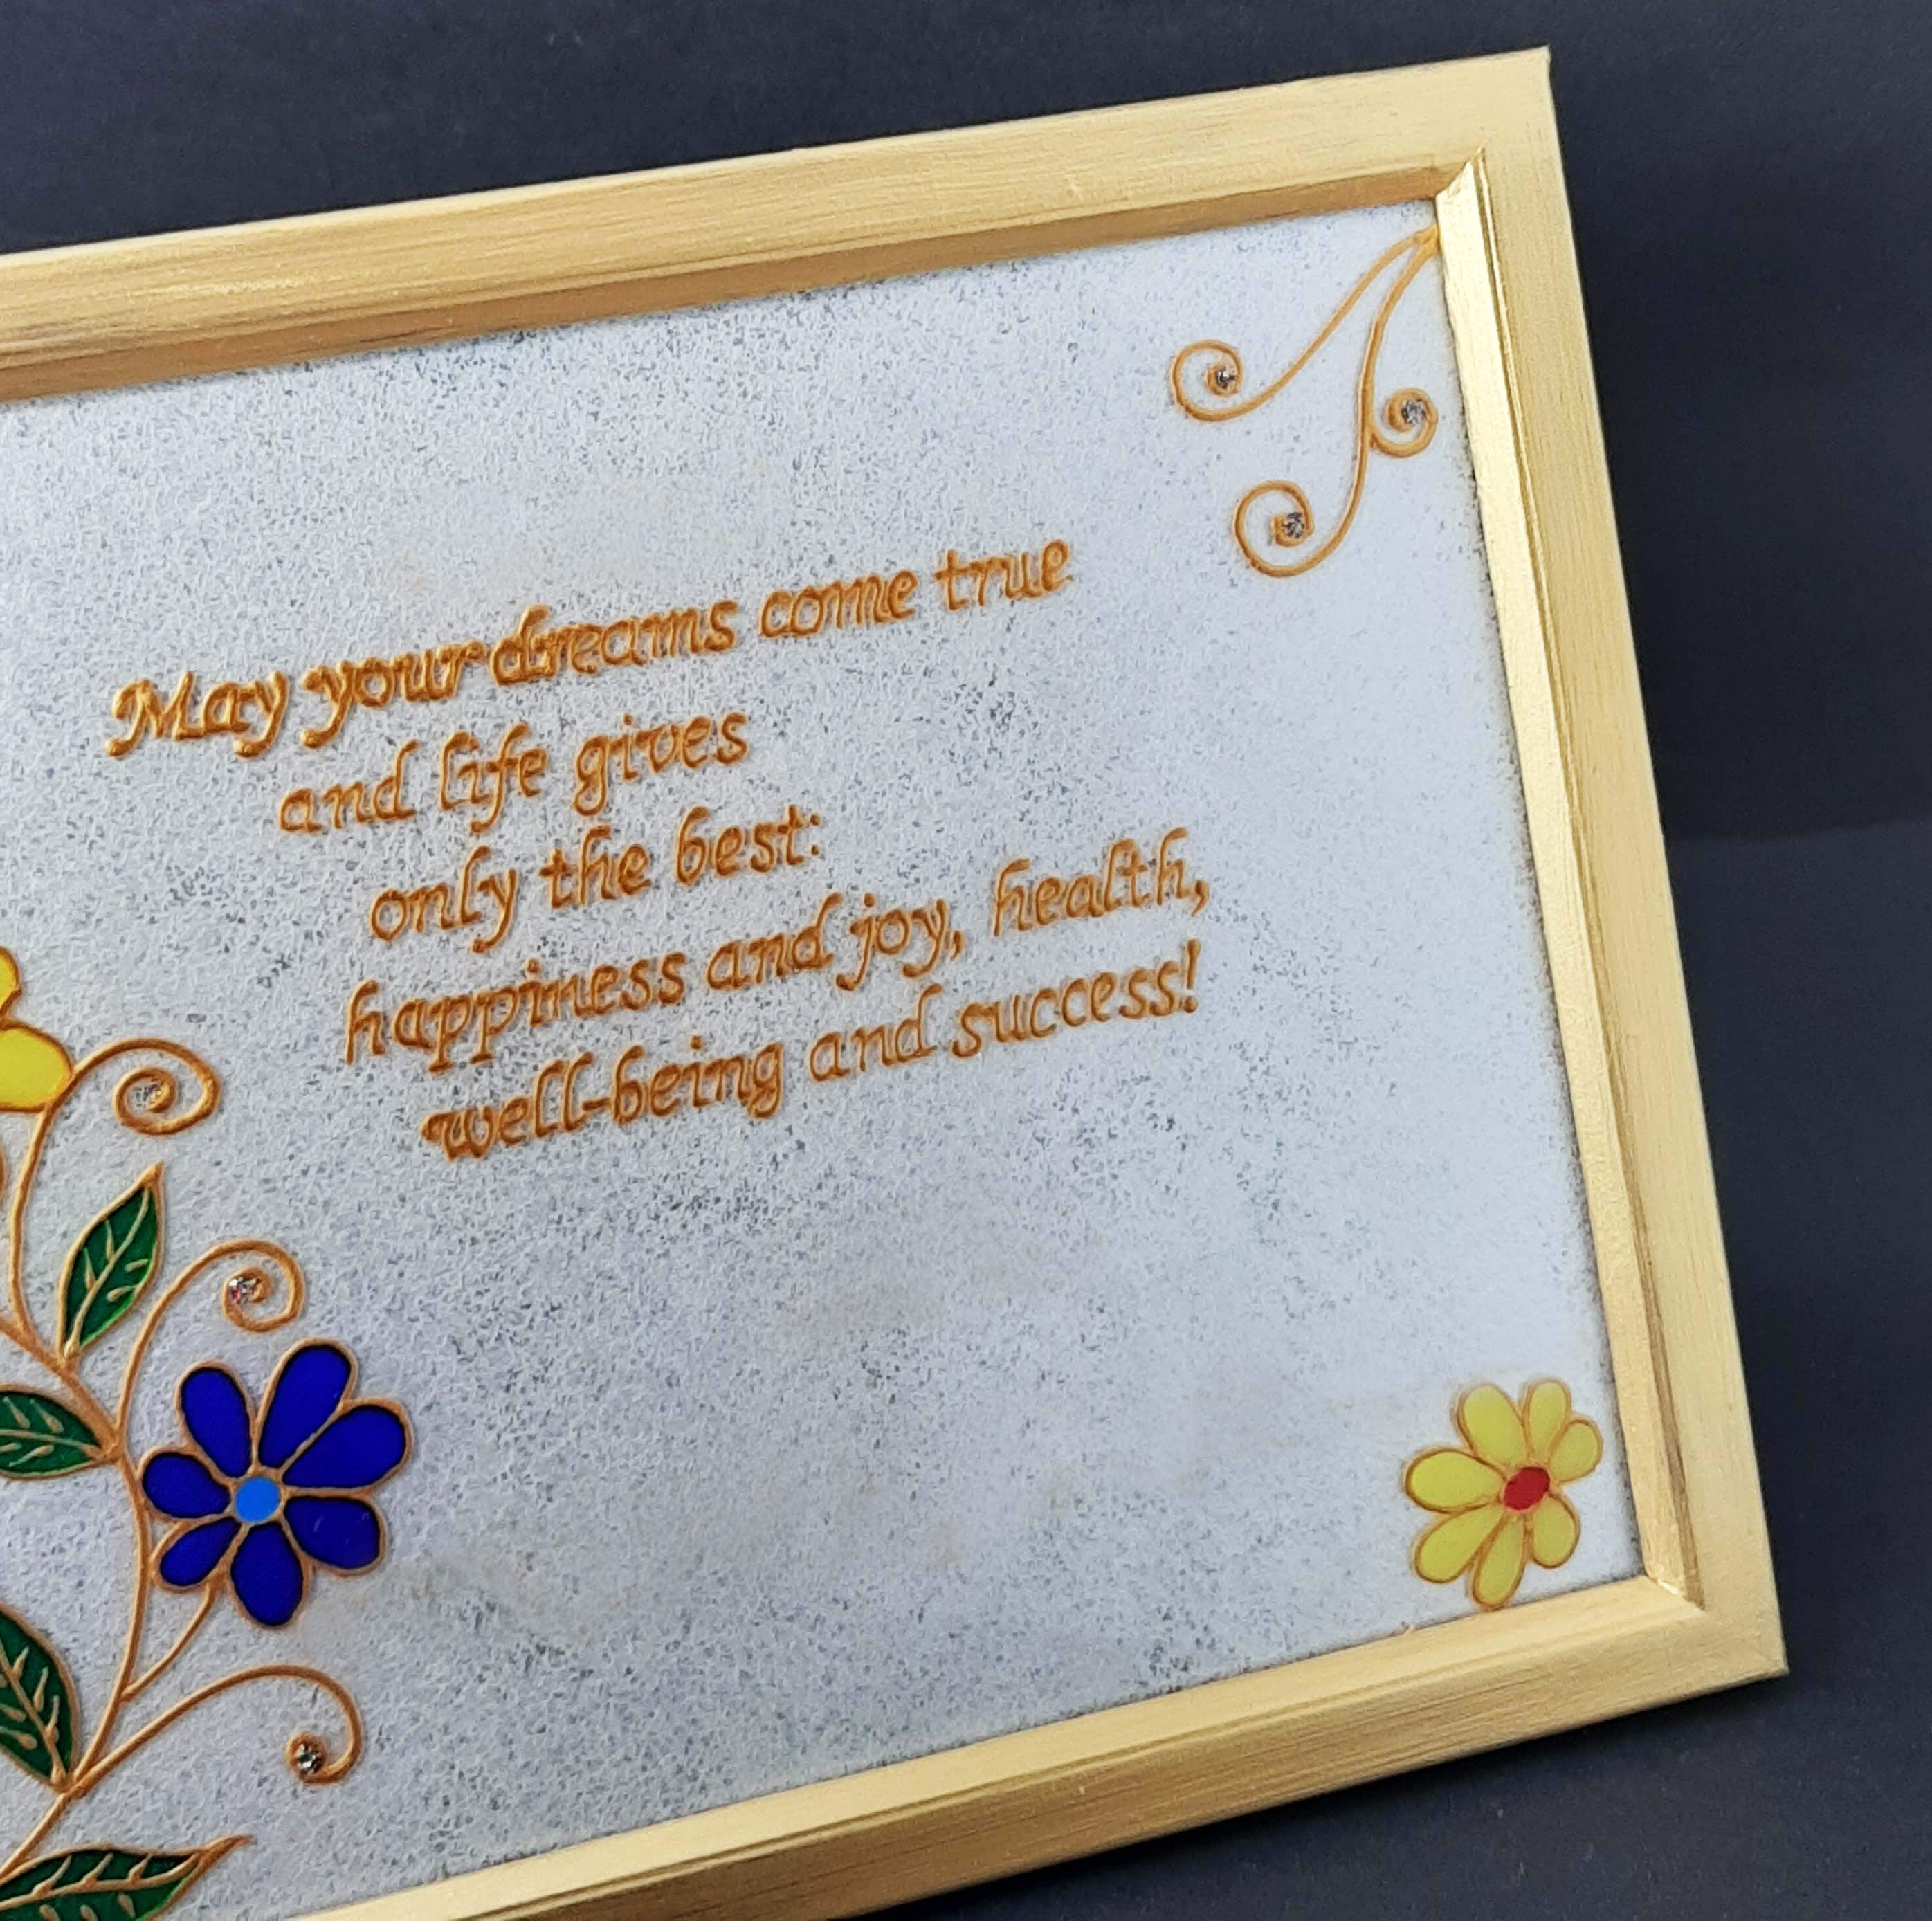 May your dreams come true
and life gives
only the best:
happiness and joy, health,
well-being and success!